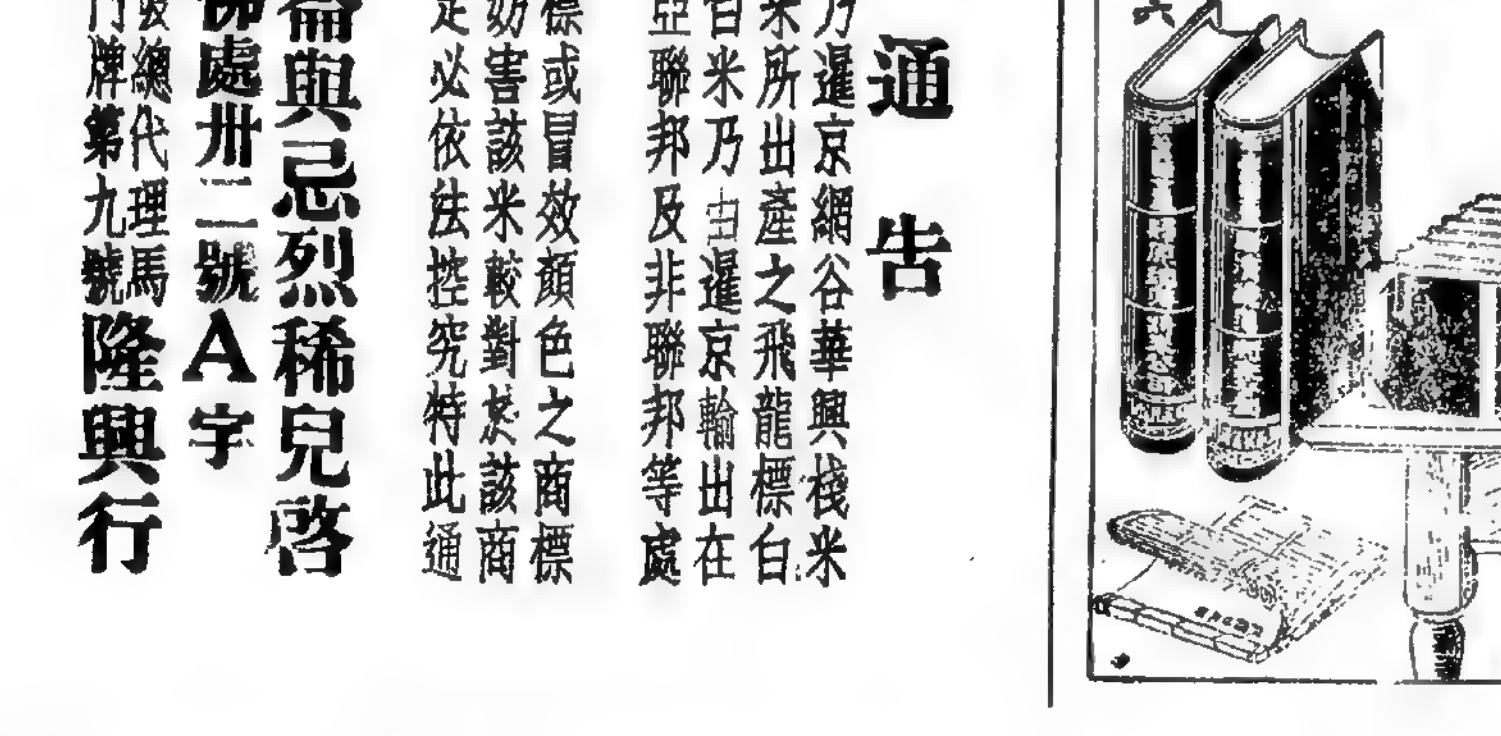 通告
乃暹京網谷華興棧米
米所出產之飛龍標白
白米乃由暹京輸出在
亞聯邦及非聯邦等處
標或冒效顏色之商標
妨害該米較對於該商
定必依法控究特此通
侖與忌烈稀兒啓
佛處卅二號A字
總代理馬
門牌第九號隆興行